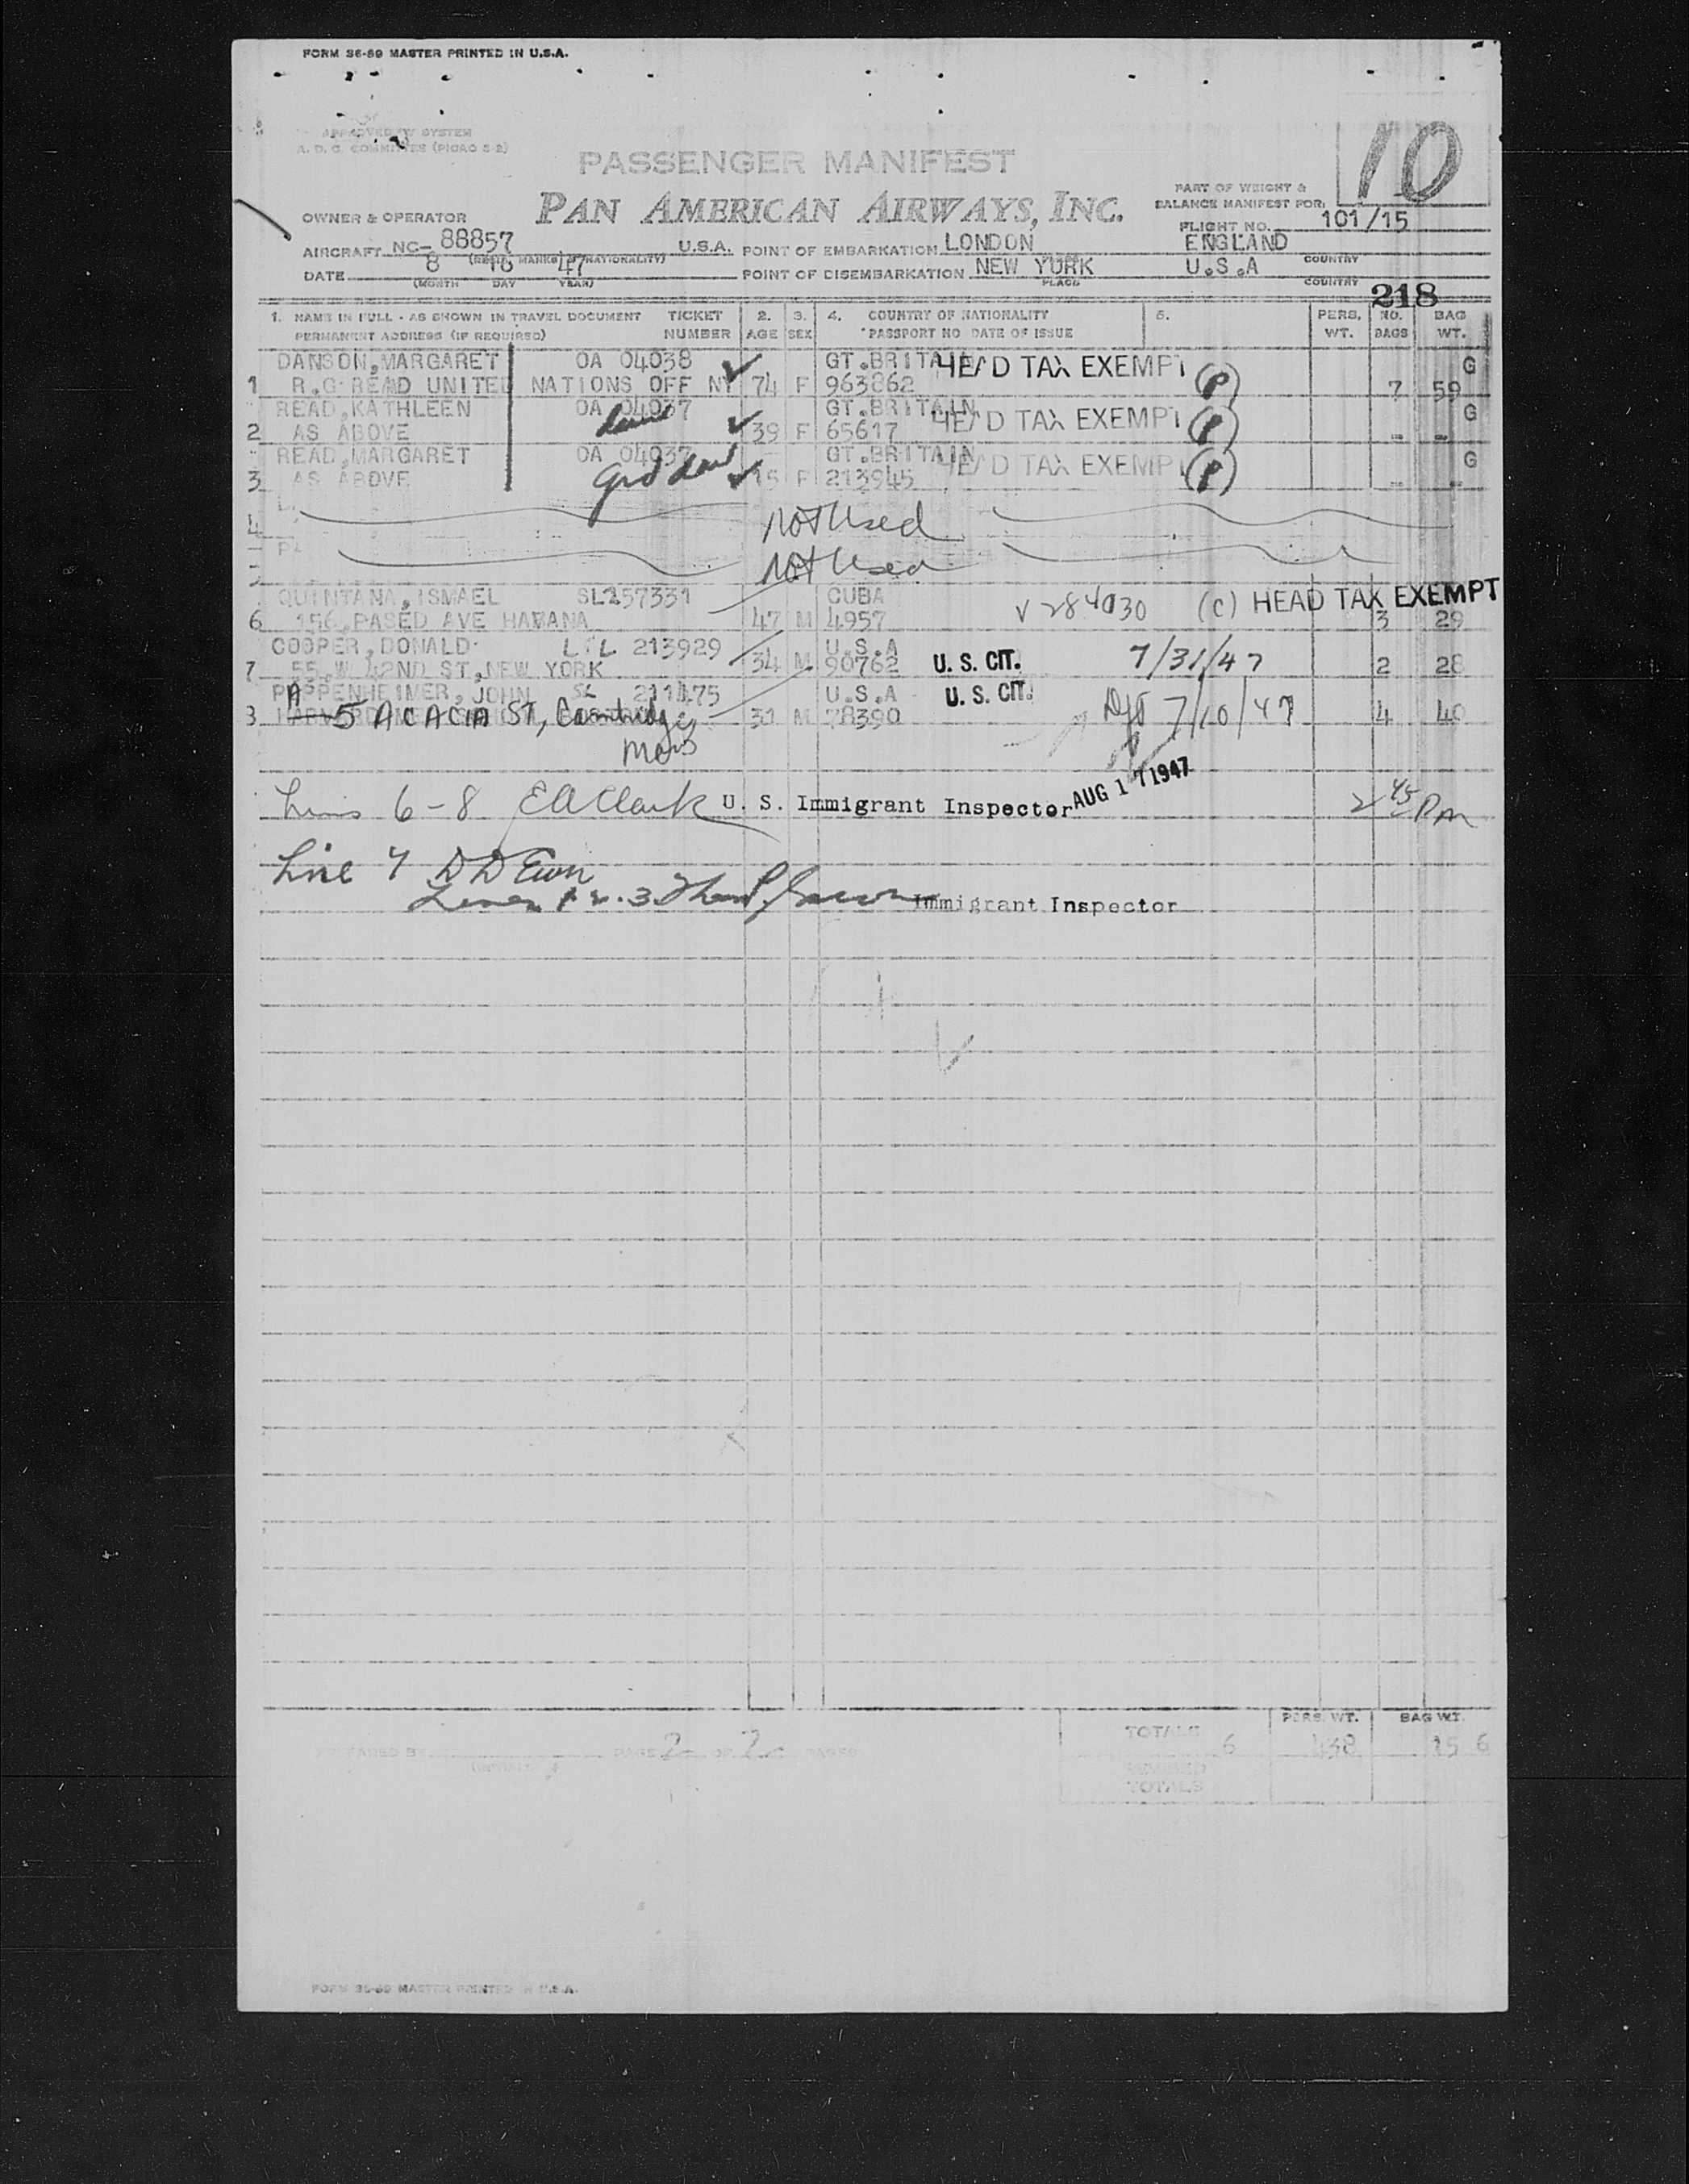 FORM 36-69 MASTER PRINTED IN U.S.A.
APPROVED BY SYSTEM
A. D. C. COMMITTEE (PICAO S-2)
10
PASSENGER MANIFEST
PAN AMERICAN AIRWAYS, INC.
PART OF WEIGHT &
BALANCE MANIFEST FOR:
FLIGHT NO. 101/15
OWNER & OPERATOR
AIRCRAFT NC- 88857 U.S.A. POINT OF EMBARKATION LONDON ENGLAND
COUNTRY
DATE 8 16 47 POINT OF DISEMBARKATION NEW YORK U.S.A
(MONTH DAY YEAR) PLACE COUNTRY
218
1. NAME IN FULL - AS SHOWN IN TRAVEL DOCUMENT TICKET 2. 3. 4. COUNTRY OF NATIONALITY 5. PERS. NO. BAG
PERMANENT ADDRESS (IF REQUIRED) NUMBER AGE SEX PASSPORT NO DATE OF ISSUE WT. BAGS WT.
DANSON, MARGARET OA 04038 GT.BRITAIN HEAD TAX EXEMPT G
1 R.G READ UNITED NATIONS OFF NY 74 F 963862 (P) 7 59
READ, KATHLEEN OA 04037 GT.BRITAIN HEAD TAX EXEMPT G
2 AS ABOVE 39 F 65617 (P) - -
READ, MARGARET OA 04037 GT.BRITAIN HEAD TAX EXEMPT G
3 AS ABOVE Grd dau 15 F 213945 (P) - -
4 Not Used
Not Used
QUINTANA, ISMAEL SL257331 CUBA V 284030 (C) HEAD TAX EXEMPT
6 156 PASED AVE HABANA 47 M 4957 3 29
COOPER, DONALD 213929 U.S.A
7 55 W 42ND ST, NEW YORK 34 M 90762 U. S. CIT. 7/31/47 2 28
PAPPENHEIMER, JOHN SL 211475 U.S.A U. S. CIT.
8 5 ACACIA ST, Cambridge 30 M 78390 7/10/47 4 40
Mass
Lines 6-8 EA Clark U. S. Immigrant Inspector AUG 17 1947 2 45 Pm
Line 7
Immigrant Inspector
TOTALS 6 PERS. WT. 438 BAG WT. 156
PREPARED BY PAGE 2 OF 2 PAGES
TOTALS
FORM 36-69 MASTER PRINTED IN U.S.A.